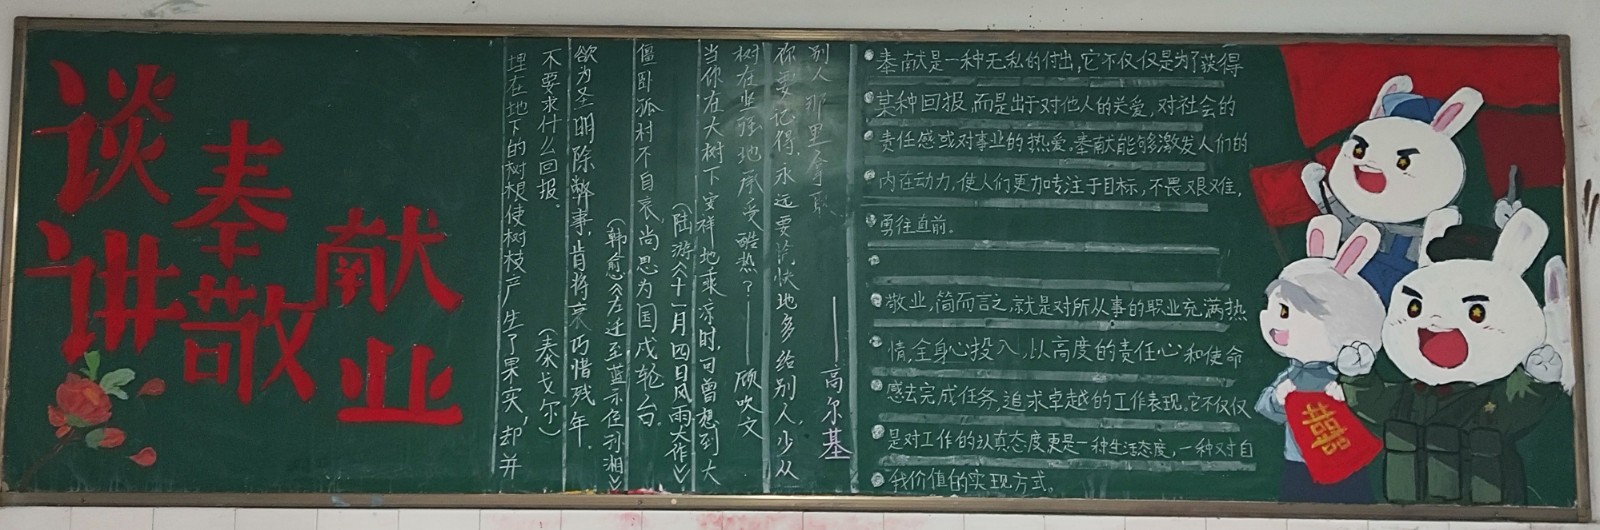 谈奉献
讲敬业
埋在地下的树根使树枝产生了果实,却并
不要求什么回报. (泰戈尔)
欲为圣明除弊事,肯将衰朽惜残年.
(韩愈《左迁至蓝示侄孙湘》
僵卧孤村不自哀,尚思为国戍轮台.
(陆游《十一月四日风雨大作》)
当你在大树下安祥地乘凉时,可曾想到大
树在坚强地承受酷热?——顾吹文
你要记得,永远要愉快地多给别人,少从
别人那里拿取
——高尔基
奉献是一种无私的付出,它不仅仅是为了获得
某种回报,而是出于对他人的关爱,对社会的
责任感或对事业的热爱.奉献能够激发人们的
内在动力,使人们更加专注于目标,不畏艰难,
勇往直前。
敬业,简而言之,就是对所从事的职业充满热
情,全身心投入,以高度的责任心和使命
感去完成任务,追求卓越的工作表现.它不仅仅
是对工作的认真态度更是一种生活态度,一种对自
我价值的实现方式。
囍